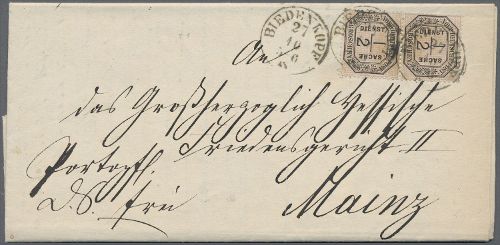 BIEDENKOPF
27
10
6
DIENST
1/2
SACHE
DIENST
1/2
SACHE
An
das Großherzoglich Hessische
Portopfl. Friedensgericht II
d. S. frei
Mainz